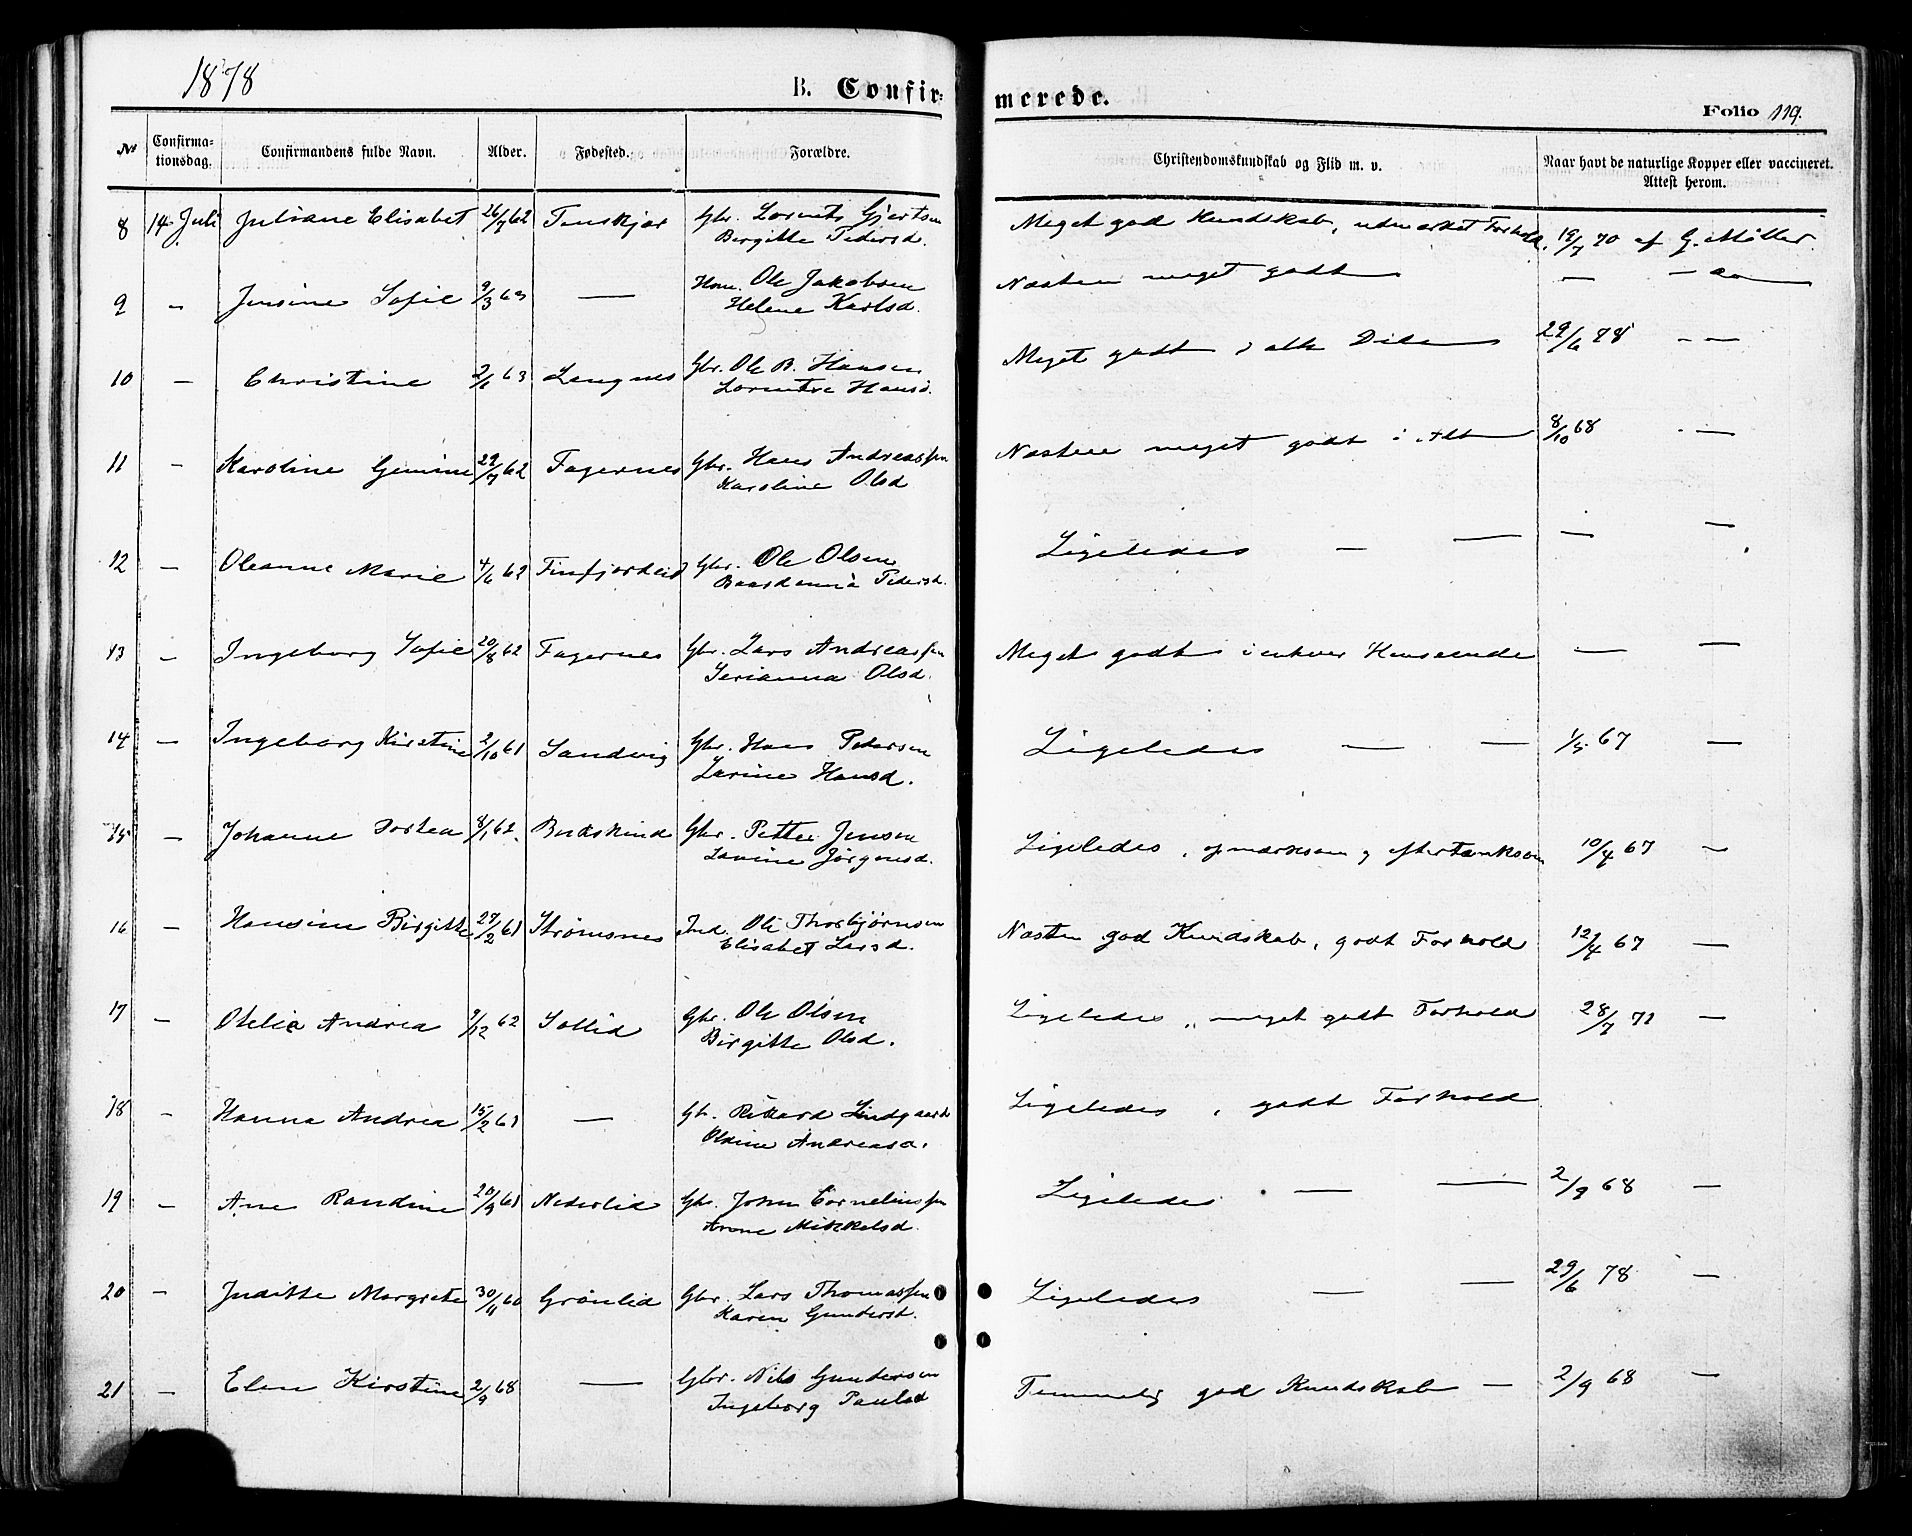 1878
B. Confirmerede.
Folio 119.
No Confirmationsdag. Confirmandens fulde Navn. Alder. Fødested. Forældre. Christendomskundskab og Flid m. v. Naar havt de naturlige Kopper eller vaccineret. Attest herom.
8 14 Juli Juliane Elisabet 26/7 62 Finskjær Gbr. Lornts Gjertsen Meget god Kundskab, udmærket Forhold. 19/7 70 af G. Møller.
Birgitte Pedersd.
9 - Jensine Sofie 9/3 63 — Hm. Ole Jakobsen Næsten meget godt — — do
Helene Karlsd.
10 - Christine 2/1 63 Langnes Gbr. Ole B. Hansen Meget godt i alle Dele 29/6 78 - -
Lorentse Hansd.
11 - Karoline Gemine 29/7 62 Fagernes Gbr. Hans Andreassen Næsten meget godt i Alt 8/10 68 - —
Karoline Olsd
12 - Oleanne Marie 4/6 62 Finfjordeid Gbr. Ole Olsen Ligeledes — — — —
Pedersd.
13 - Ingeborg Sofie 20/8 62 Fagernes Gbr. Lars Andreassen Meget godt i enhver Henseende — —
Serianna Olsd.
14 - Ingeborg Kirstine 2/10 61 Sandvig Gbr. Hans Pedersen Ligeledes — — 1/5 67 —
Larine Hansd.
15 - Johanne Dortea 8/1 62 Bukskind Gbr. Petter Jensen Ligeledes, opmærksom og eftertænksom 10/4 67 —
Lavine Jørgensd.
16 - Hansine Birgitte 27/2 61 Strømsnes Ind. Ole Thorbjørnsen Næsten god Kundskab, godt Forhold 12/4 67 —
Elisabet Larsd.
17 - Otelie Andrea 9/12 62 Sollid Gbr. Ole Olsen Ligeledes, meget godt Forhold 28/7 71 —
Birgitte Olsd.
18 - Hanna Andrea 15/2 61 — Gbr. Rikard Lindgaard Ligeledes, godt Forhold
Oldine Andreasd.
19 - Ane Randine 20/9 61 Nederlid Gbr. John Corneliussen Ligeledes — — 2/9 68 —
Arone Mikkelsd.
20 - Juditte Margrete 30/11 60 Grønlid Gbr. Lars Thomassen Ligeledes — — 29/6 78 —
Karen Gundersd.
21 - Elen Kirstine 2/9 68 — Gbr. Nils Gundersen Temmelig god Kundskab — 2/9 68 —
Ingeborg Paulsd